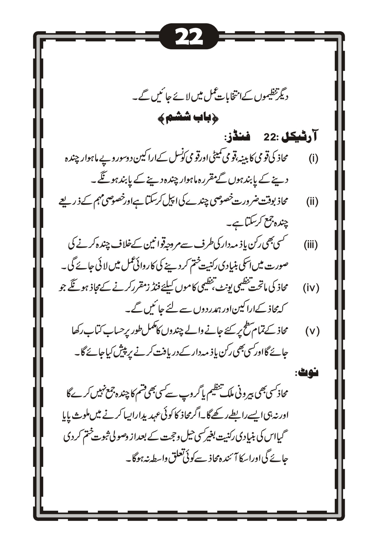 22
دیگر تنظیموں کے انتخابات عمل میں لائے جائیں گے۔
﴿باب ششم﴾
آرٹیکل :22 فنڈز:
(i) محاذ کی قومی کابینہ، قومی کمیٹی اور قومی کونسل کے اراکین دو سو روپے ماہوار چندہ
دینے کے پابند ہوں گے مقررہ ماہوار چندہ دینے کے پابند ہونگے۔
(ii) محاذ بوقت ضرورت خصوصی چندے کی اپیل کر سکتا ہے اور خصوصی مہم کے ذریعے
چندہ جمع کر سکتا ہے۔
(iii) کسی بھی رکن یا ذمہ دار کی طرف سے مروجہ قوانین کے خلاف چندہ کرنے کی
صورت میں اسکی بنیادی رکنیت ختم کر دینے کی کاروائی عمل میں لائی جائے گی۔
(iv) محاذ کی ماتحت تنظیمی یونٹ، تنظیمی کاموں کیلئے فنڈز مقرر کرنے کے مجاز ہونگے جو
کہ محاذ کے اراکین اور ہمدردوں سے لئے جائیں گے۔
(v) محاذ کے تمام سطح پر کئے جانے والے چندوں کا مکمل طور پر حساب کتاب رکھا
جائے گا اور کسی بھی رکن یا ذمہ دار کے دریافت کرنے پر پیش کیا جائے گا۔
نوٹ:
محاذ کسی بھی بیرونی ملک تنظیم یا گروپ سے کسی بھی قسم کا چندہ جمع نہیں کرے گا
اور نہ ہی ایسے رابطے رکھے گا۔ اگر محاذ کا کوئی عہدیدار ایسا کرنے میں ملوث پایا
گیا اس کی بنیادی رکنیت بغیر کسی حیل و حجت کے بعد از وصولی ثبوت ختم کر دی
جائے گی اور اسکا آئندہ محاذ سے کوئی تعلق واسطہ نہ ہوگا۔